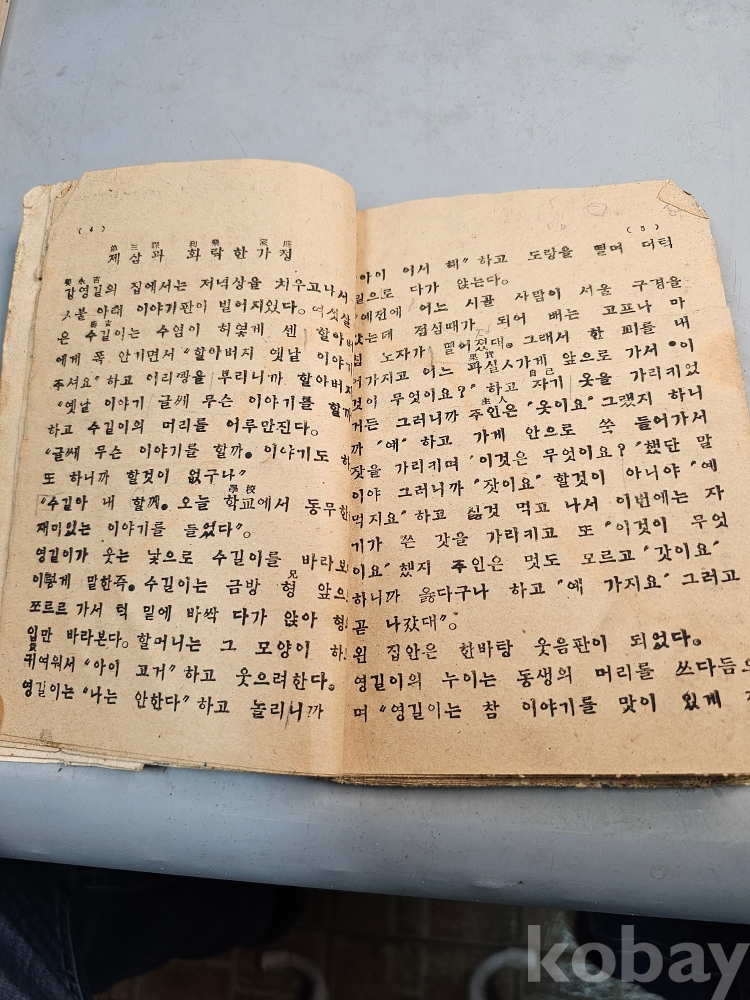 (4)
第三課 和樂 家庭
제삼과 화락한가정
姜永吉
강영길의 집에서는 저녁상을 치우고나서
불 아래 이야기판이 벌어지었다。여섯살
은 수길이는 수염이 허옇게 센 할아버
에게 폭 안기면서 “할아버지 옛날 이야기
주셔요” 하고 어리광을 부리니까 할아버지
“옛날 이야기 글쎄 무슨 이야기를 할까
하고 수길이의 머리를 어루만진다。
“글쎄 무슨 이야기를 할까。이야기도 하
도 하니까 할것이 없구나”
學校
“수길아 내 할께。오늘 학교에서 동무한
재미있는 이야기를 들었다”。
영길이가 웃는 낯으로 수길이를 바라보
兄
이렇게 말한즉。수길이는 금방 형 앞으
쪼르르 가서 턱 밑에 바싹 다가 앉아 형
입만 바라본다。할머니는 그 모양이 하
귀여워서 “아이 고거” 하고 웃으려한다。
영길이는 “나는 안한다” 하고 놀리니까
(5)
아이 어서 해” 하고 도랑을 떨며 더턱
밑으로 다가 앉는다。
“예전에 어느 시골 사람이 서울 구경을
갔는데 점심때가 되어 배는 고프나 마
침 노자가 떨어졌대。그래서 한 피를 내
果實
어가지고 어느 과실人가게 앞으로 가서 “이
自己
것이 무엇이요?” 하고 자기 옷을 가리키었
主人
거든 그러니까 주인은 “옷이요” 그랬지 하니
까 “예” 하고 가게 안으로 쑥 들어가서
잣을 가리키며 “이것은 무엇이요?” 했단 말
이야 그러니까 “잣이요” 할것이 아니야 “예
먹지요” 하고 실컷 먹고 나서 이번에는 자
기가 쓴 갓을 가리키고 또 “이것이 무엇
이요” 했지 주인은 멋도 모르고 “갓이요”
하니까 옳다구나 하고 “예 가지요” 그러고
곧 나갔대”。
왼 집안은 한바탕 웃음판이 되었다。
영길이의 누이는 동생의 머리를 쓰다듬으
며 “영길이는 참 이야기를 맛이 있게
kobay